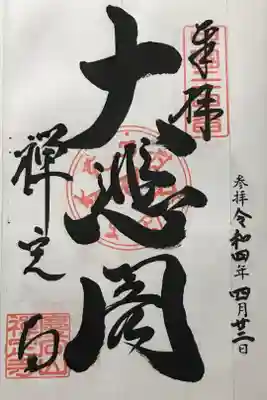 奉拝
参拝令和四年四月廿二日
大悲閣
禅定寺